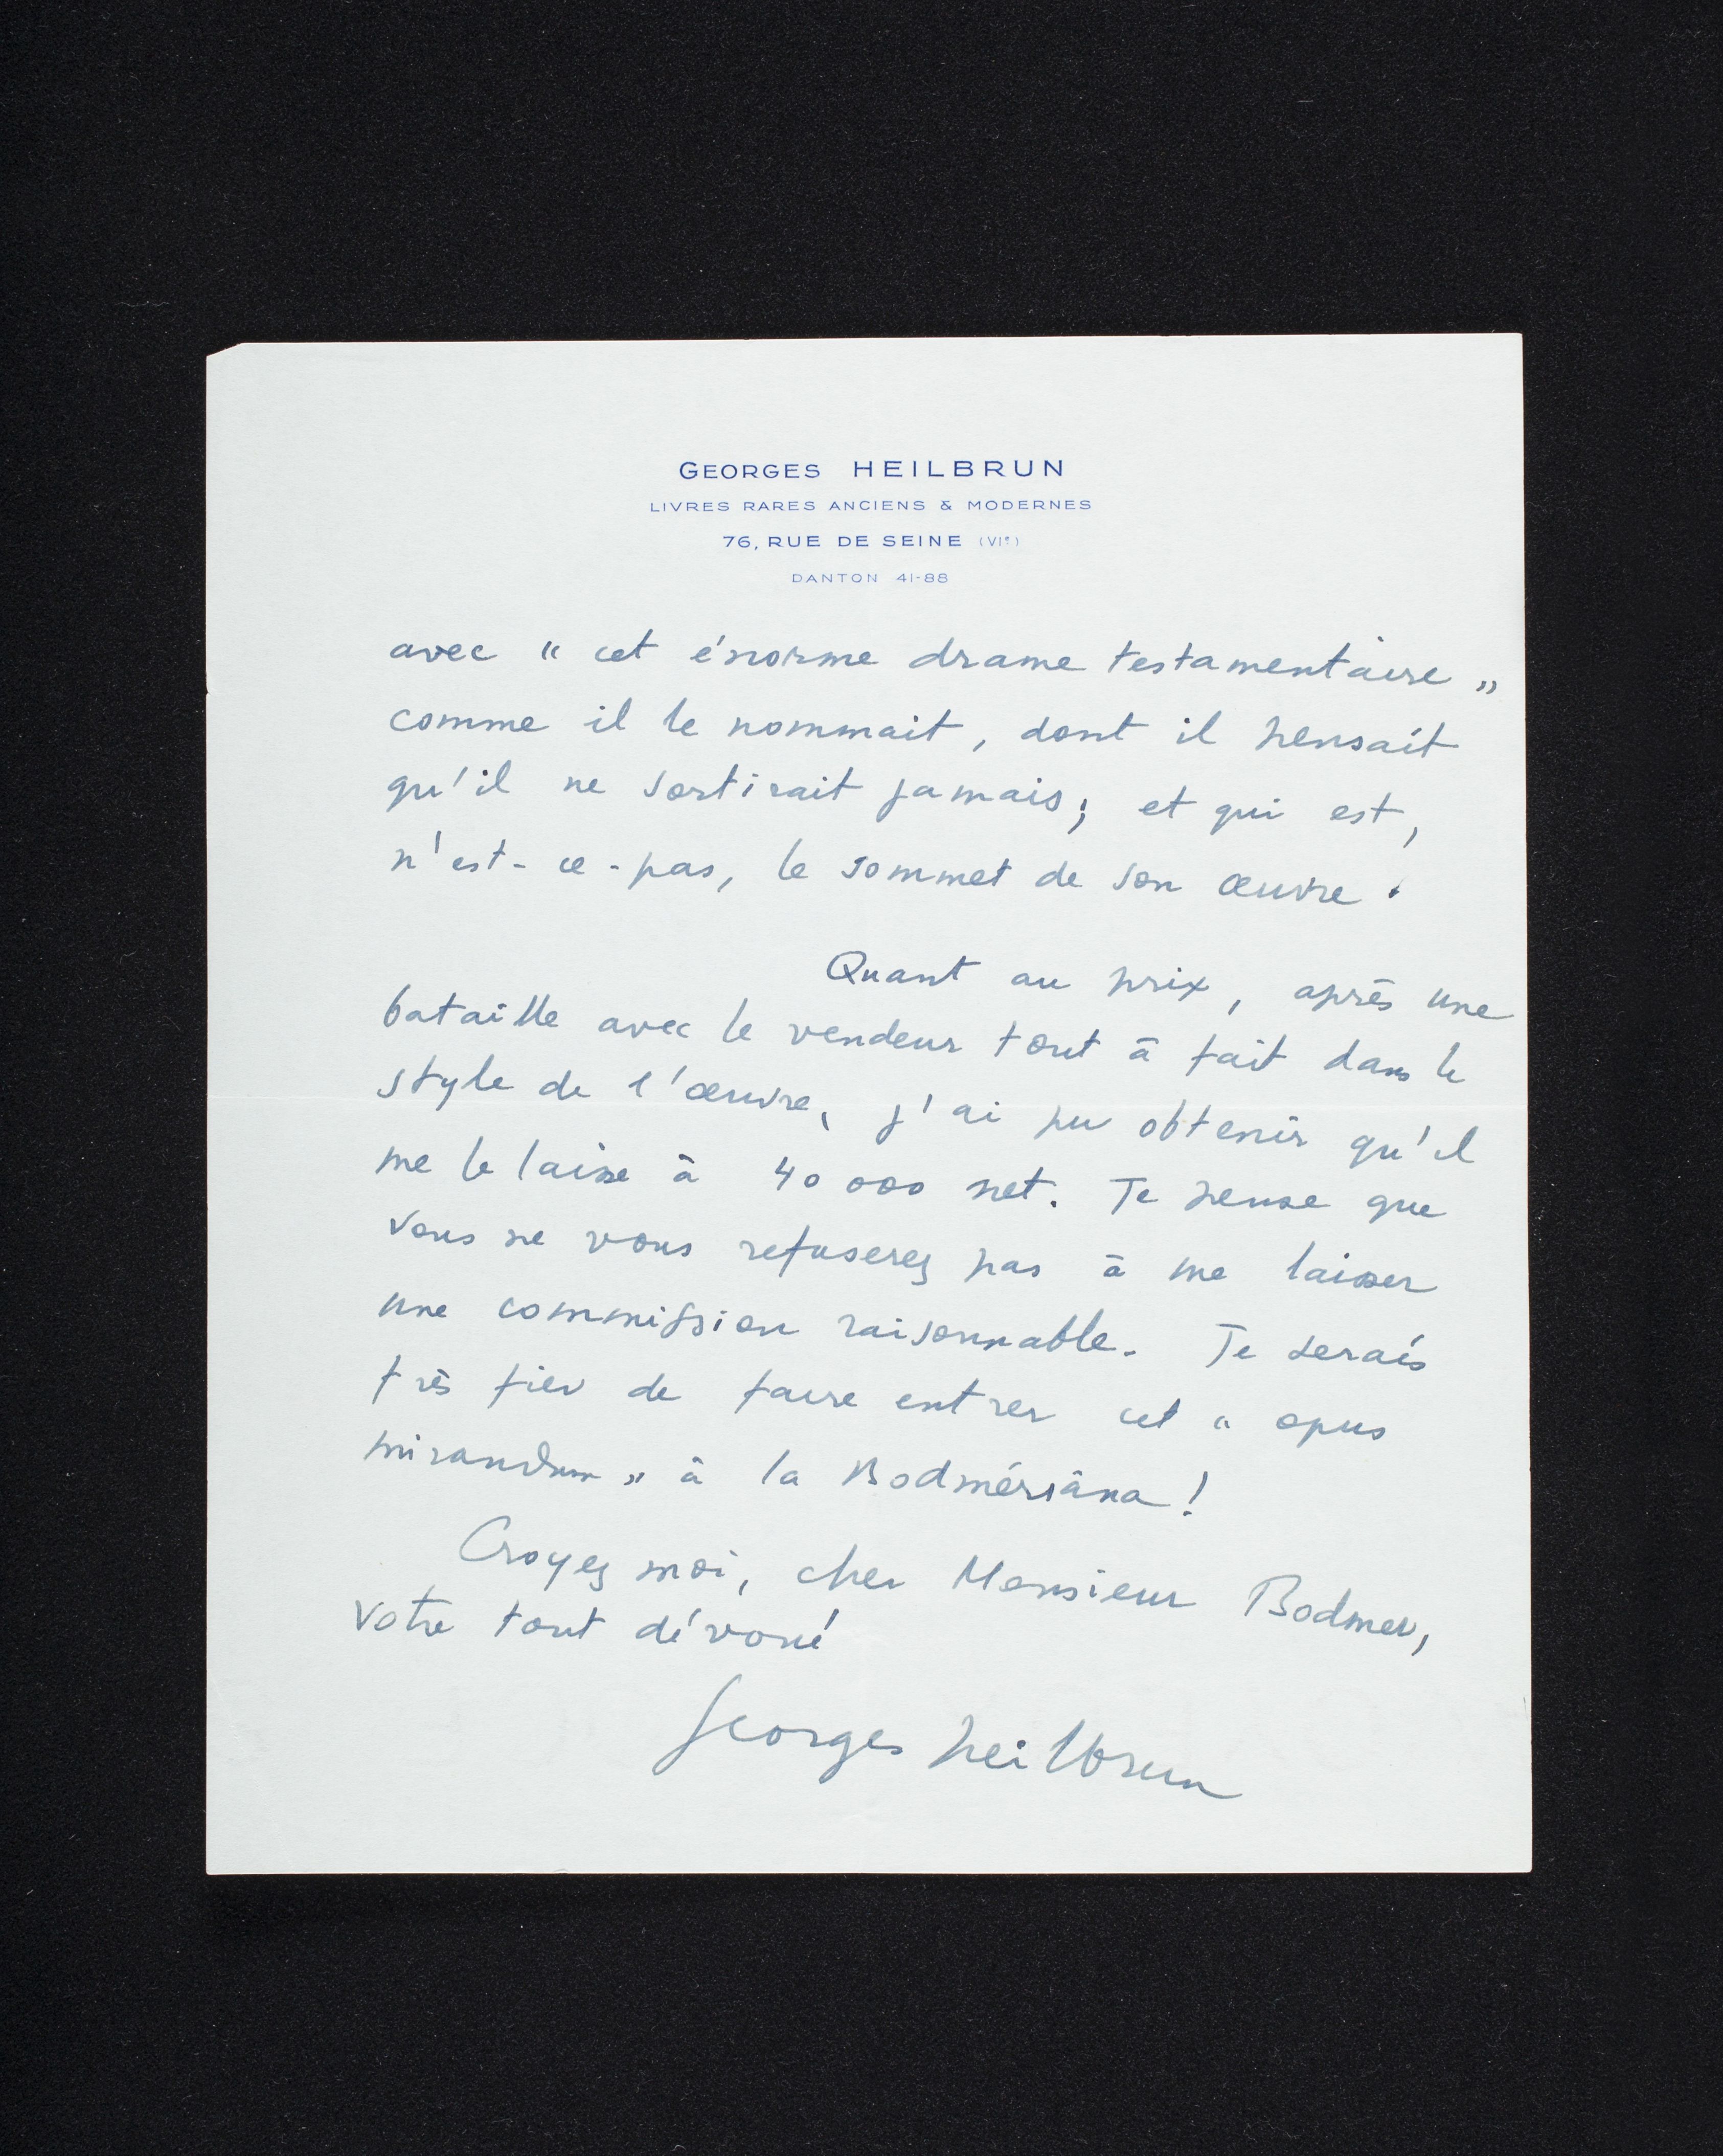 GEORGES HEILBRUN
LIVRES RARES ANCIENS & MODERNES
76, RUE DE SEINE (VIe)
DANTON 41-88
avec « cet énorme drame testamentaire »
comme il le nommait, dont il pensait
qu'il ne sortirait jamais; et qui est,
n'est-ce-pas, le sommet de son œuvre.
Quant au prix, après une
bataille avec le vendeur tout à fait dans le
style de l'œuvre, j'ai pu obtenir qu'il
me le laisse à 40 000 net. Je pense que
vous ne vous refuserez pas à me laisser
une commission raisonnable. Je serais
très fier de faire entrer cet « opus
mirandum » à la Bodmériâna !
Croyez moi, cher Monsieur Bodmer,
votre tout dévoué
Georges Heilbrun